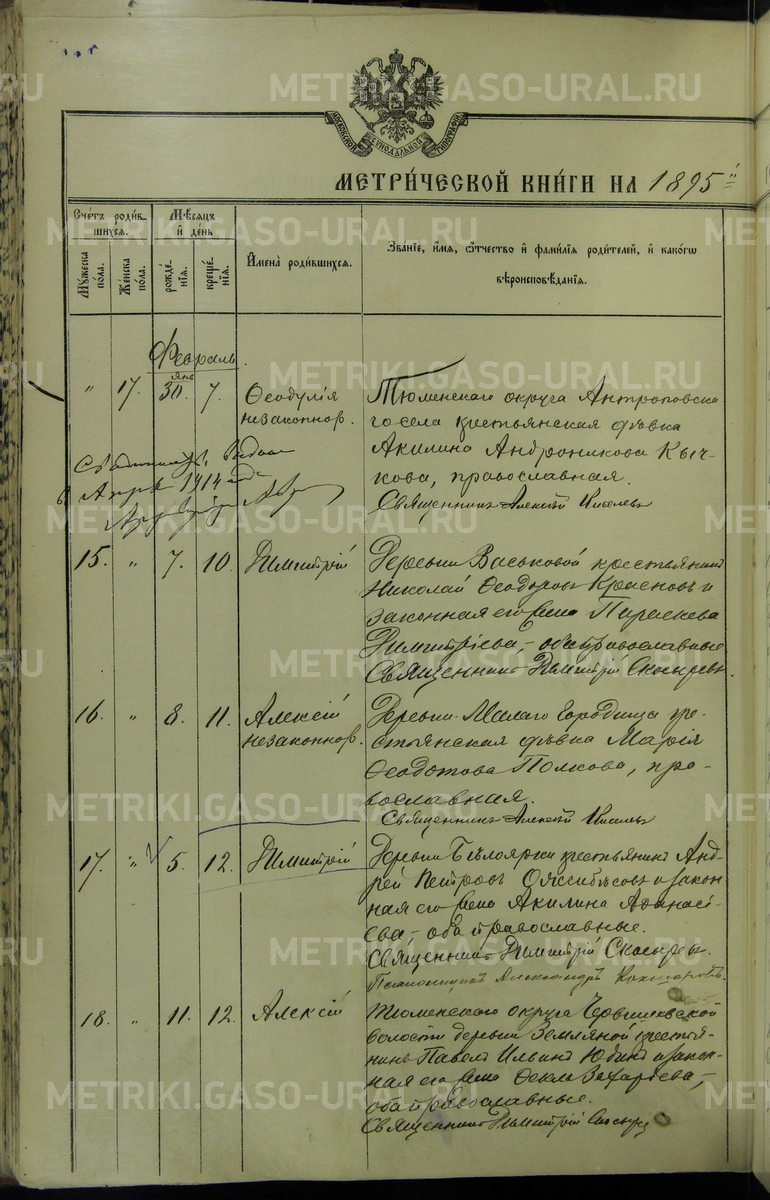 METRIKI.GASO-URAL.RU
МОСКОВСКОЙ СѴНОДАЛЬНОЙ ТИПОГРАФІИ
МЕТРИ́ЧЕСКОЙ КНИ́ГИ НА 1895 й
Сче́тъ роди́вшихся.
Мѣ́сяцъ и҆ де́нь
Мꙋ́жеска по́ла.
Же́нска по́ла.
рожде́нїѧ.
креще́нїѧ.
И҆мена̀ роди́вшихся.
Зва́нїе, и҆́мѧ, ѻ҆́тчество и҆ фами́лїѧ роди́телей, и҆ како́гѡ
вѣроисповѣ́данїѧ.
Февраль.
янв
" 17. 30. 7. Ѳеодулія
незаконнор.
Тюменскаго округа Антроповска
го села крестьянская дѣвка
Акилина Андроникова Кыч-
кова, православная.
Священникъ Алексѣй Киселевъ
1914
15. " 7. 10. Димитрій
Деревни Васьковой крестьянинъ
Николай Ѳеодоровъ Красновъ и
законная его жена Параскева
Димитріева, – оба православные
Священникъ Димитрій Скосыревъ.
16. " 8. 11. Алексій
незаконнор.
Деревни Малаго Городища кре-
стьянская дѣвка Марія
Ѳеодотова Полкова, пра-
вославная.
Священникъ Алексѣй Киселевъ
17. " 5. 12. Димитрій
Деревни Бѣлоярки крестьянинъ Анд-
рей Петровъ и закон-
ная его жена Акилина Аѳанасі-
ева – оба православные.
Священникъ Димитрій Скосырев.
Псаломщикъ Александръ
18. " 11. 12. Алексій
Тюменскаго округа Червишевской
волости деревни Земляной крестья-
нинъ Павелъ Ильинъ Юдинъ и закон-
ная его жена Ѳекла Захарьева, –
оба православные.
Священникъ Димитрій Скосырев